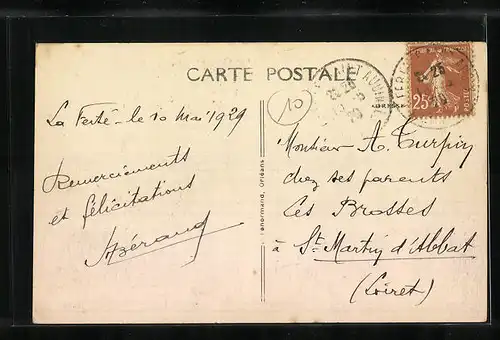 CARTE POSTALE
La Ferté - le 10 Mai 1929
Remerciements
et félicitations
ABéraud
10
Lenormand, Orléans
ADRESSE
25c
Monsieur A. Turpin
chez ses parents
Les Brosses
à St Martin d'Abbat
(Loiret)